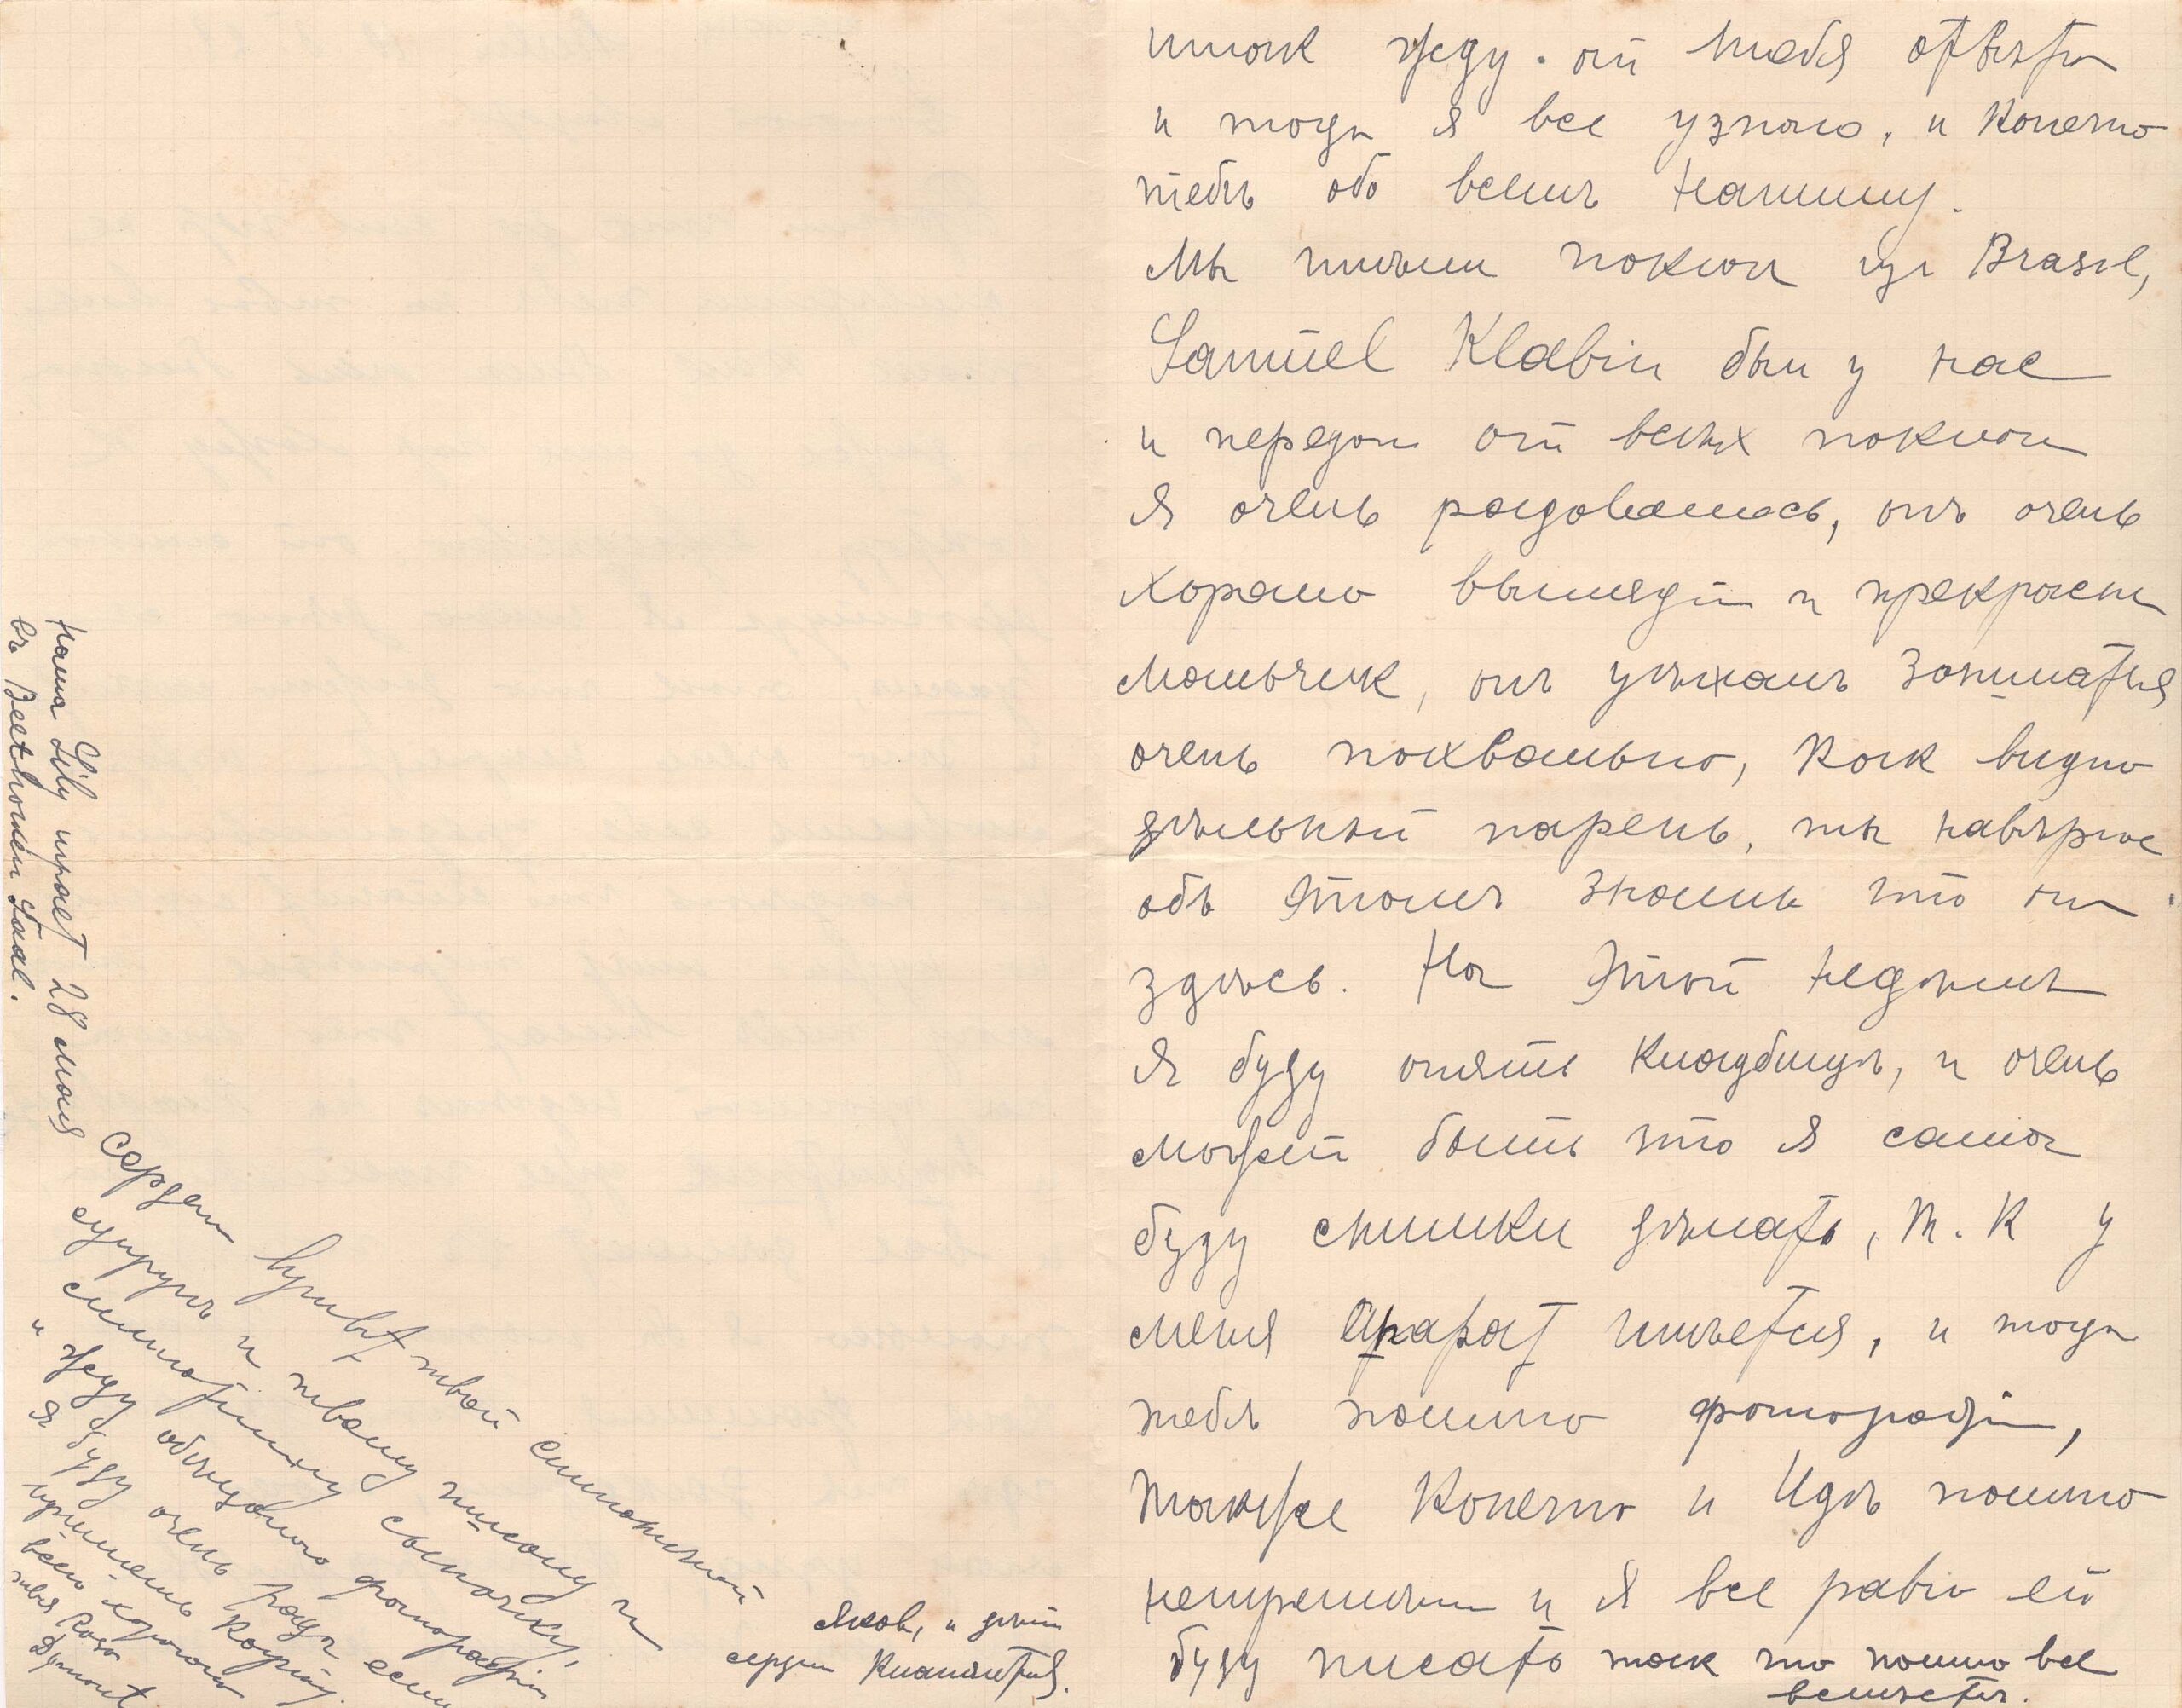 такъ жду от тебя отвѣта
и тогда я все узнаю, и конечно
тебѣ обо всемъ напишу.
Мы имѣем поклон из Brasil,
Samuel Klabin был у нас
и передал от всѣх поклон
я очень радовалась, онъ очень
хорошо выглядит и прекрасны
мальчик, онъ уѣхалъ заниматься
очень похвально, как видно
дѣльный парень, ты навѣрное
объ этомъ знаешь что он
здѣсь. На этой недѣлѣ
я буду опять на кладбищѣ, и очень
может быть что я сама
буду снимки дѣлать, т. к у
меня апарат имѣется, и тогда
тебѣ пошлю фотографiи,
также конечно и Идѣ пошлю
непремѣнно и я все равно ей
буду писать так что пошлю все
вмѣстѣ.
наша Lily играет 28 мая
въ Beethoven Saal.
Сердечны привѣт твоей симпатичной
супругѣ и твоему милому и
симпатичному сыночку,
и жду обѣщаную фотографiю
я буду очень рада если
пришлешь карточку.
всего хорошаго
твоя Rosa
Dymont
Яков, и дѣти
сердечно кланяются.